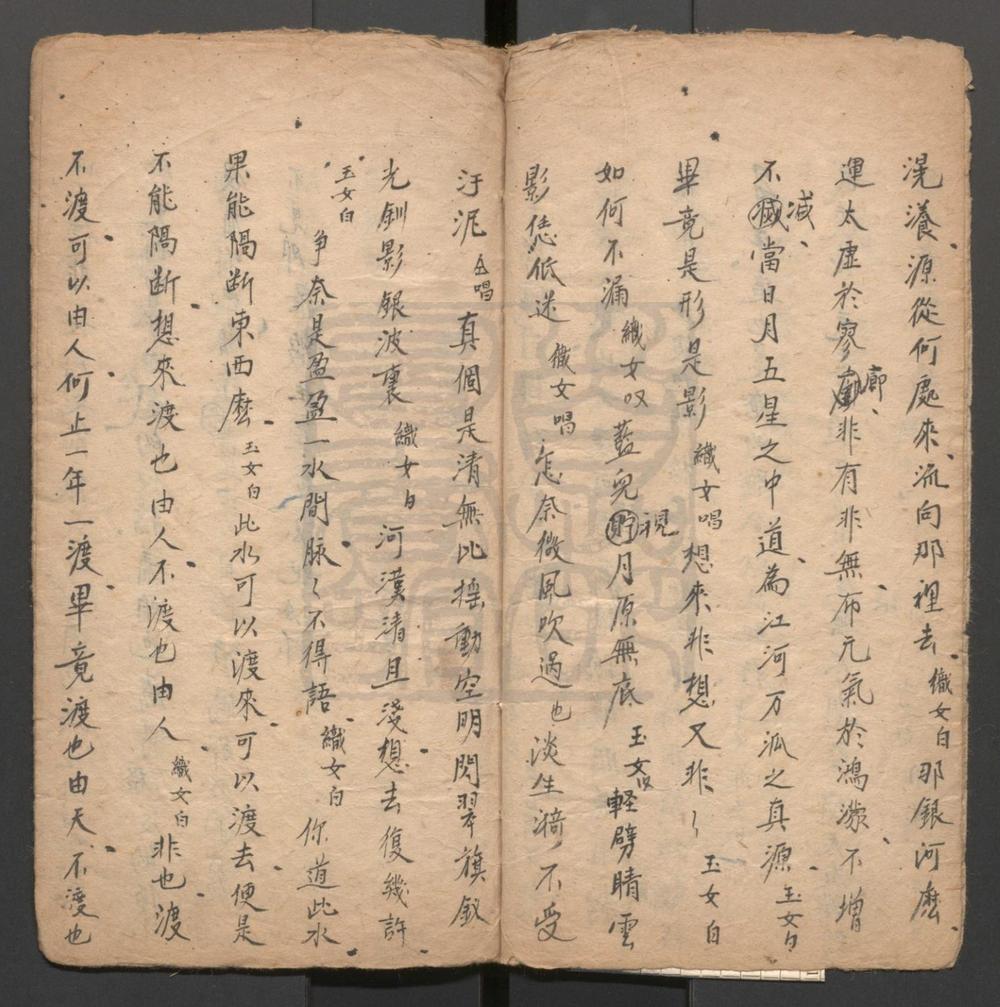 滉瀁源從何處來流向那裡去織女白那銀河麽
運太虛於寥廓非有非無布元氣於鴻濛不增
不減當日月五星之中道為江河万派之真源玉女白
畢竟是形是影織女唱想來非想又非〻玉女白
如何不漏織女叹藍兒視月原無底玉女叹軽劈晴雲
影恁低迷織女唱怎奈微風吹過也淡生漪不受
汙泥仝唱真個是清無比揺動空明閃翠旗釵
光釧影銀波裏織女白河漢清且淺想去復幾許
玉女白争奈是盈盈一水間脉〻不得語織女白你道此水
果能隔断東西麽玉女白此水可以渡來可以渡去便是
不能隔断想來渡也由人不渡也由人織女白非也渡
不渡可以由人何止一年一渡畢竟渡也由天不渡也